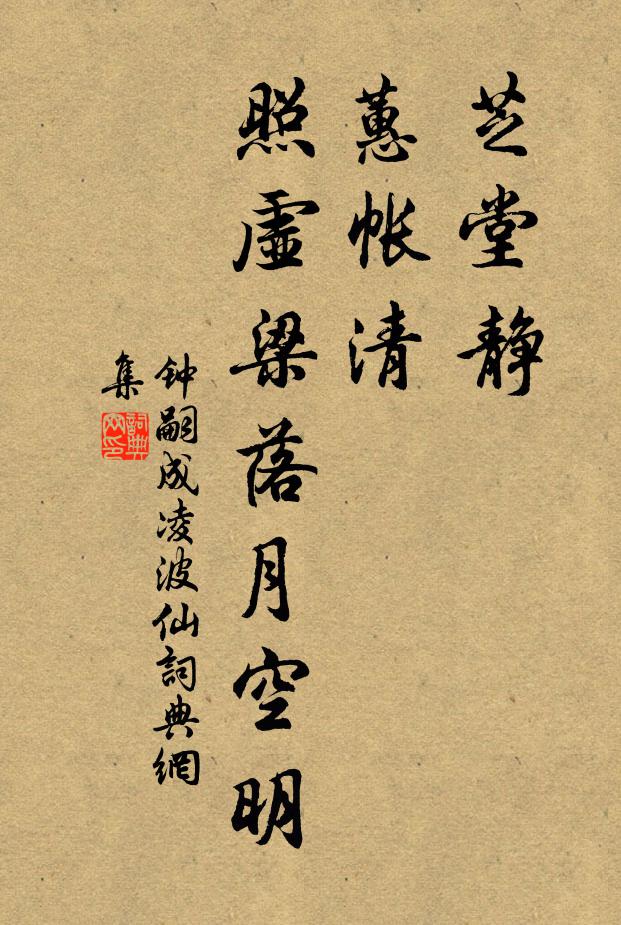 芝堂静
蕙帐清
照虚梁落月空明
钟嗣成凌波仙詞典網
集
詞典
网印